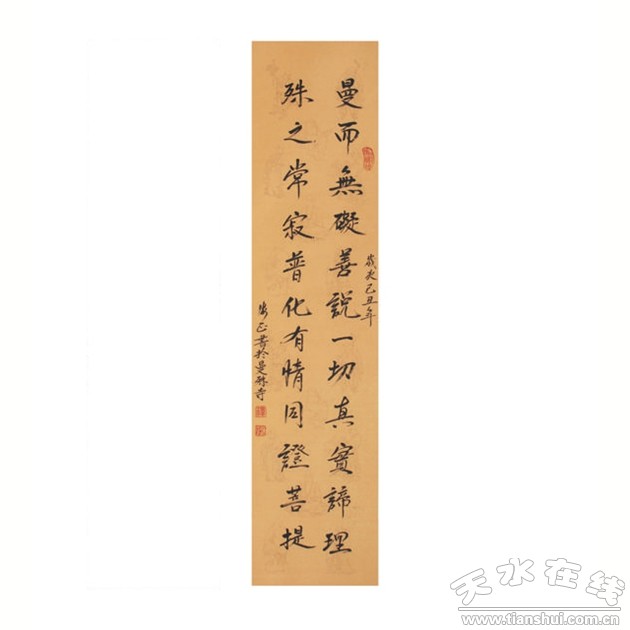 曼而無礙善說一切真實諦理
歲次己丑年
殊之常寂普化有情同證菩提
書於曼殊寺
天水在线
www.tianshui.com.cn